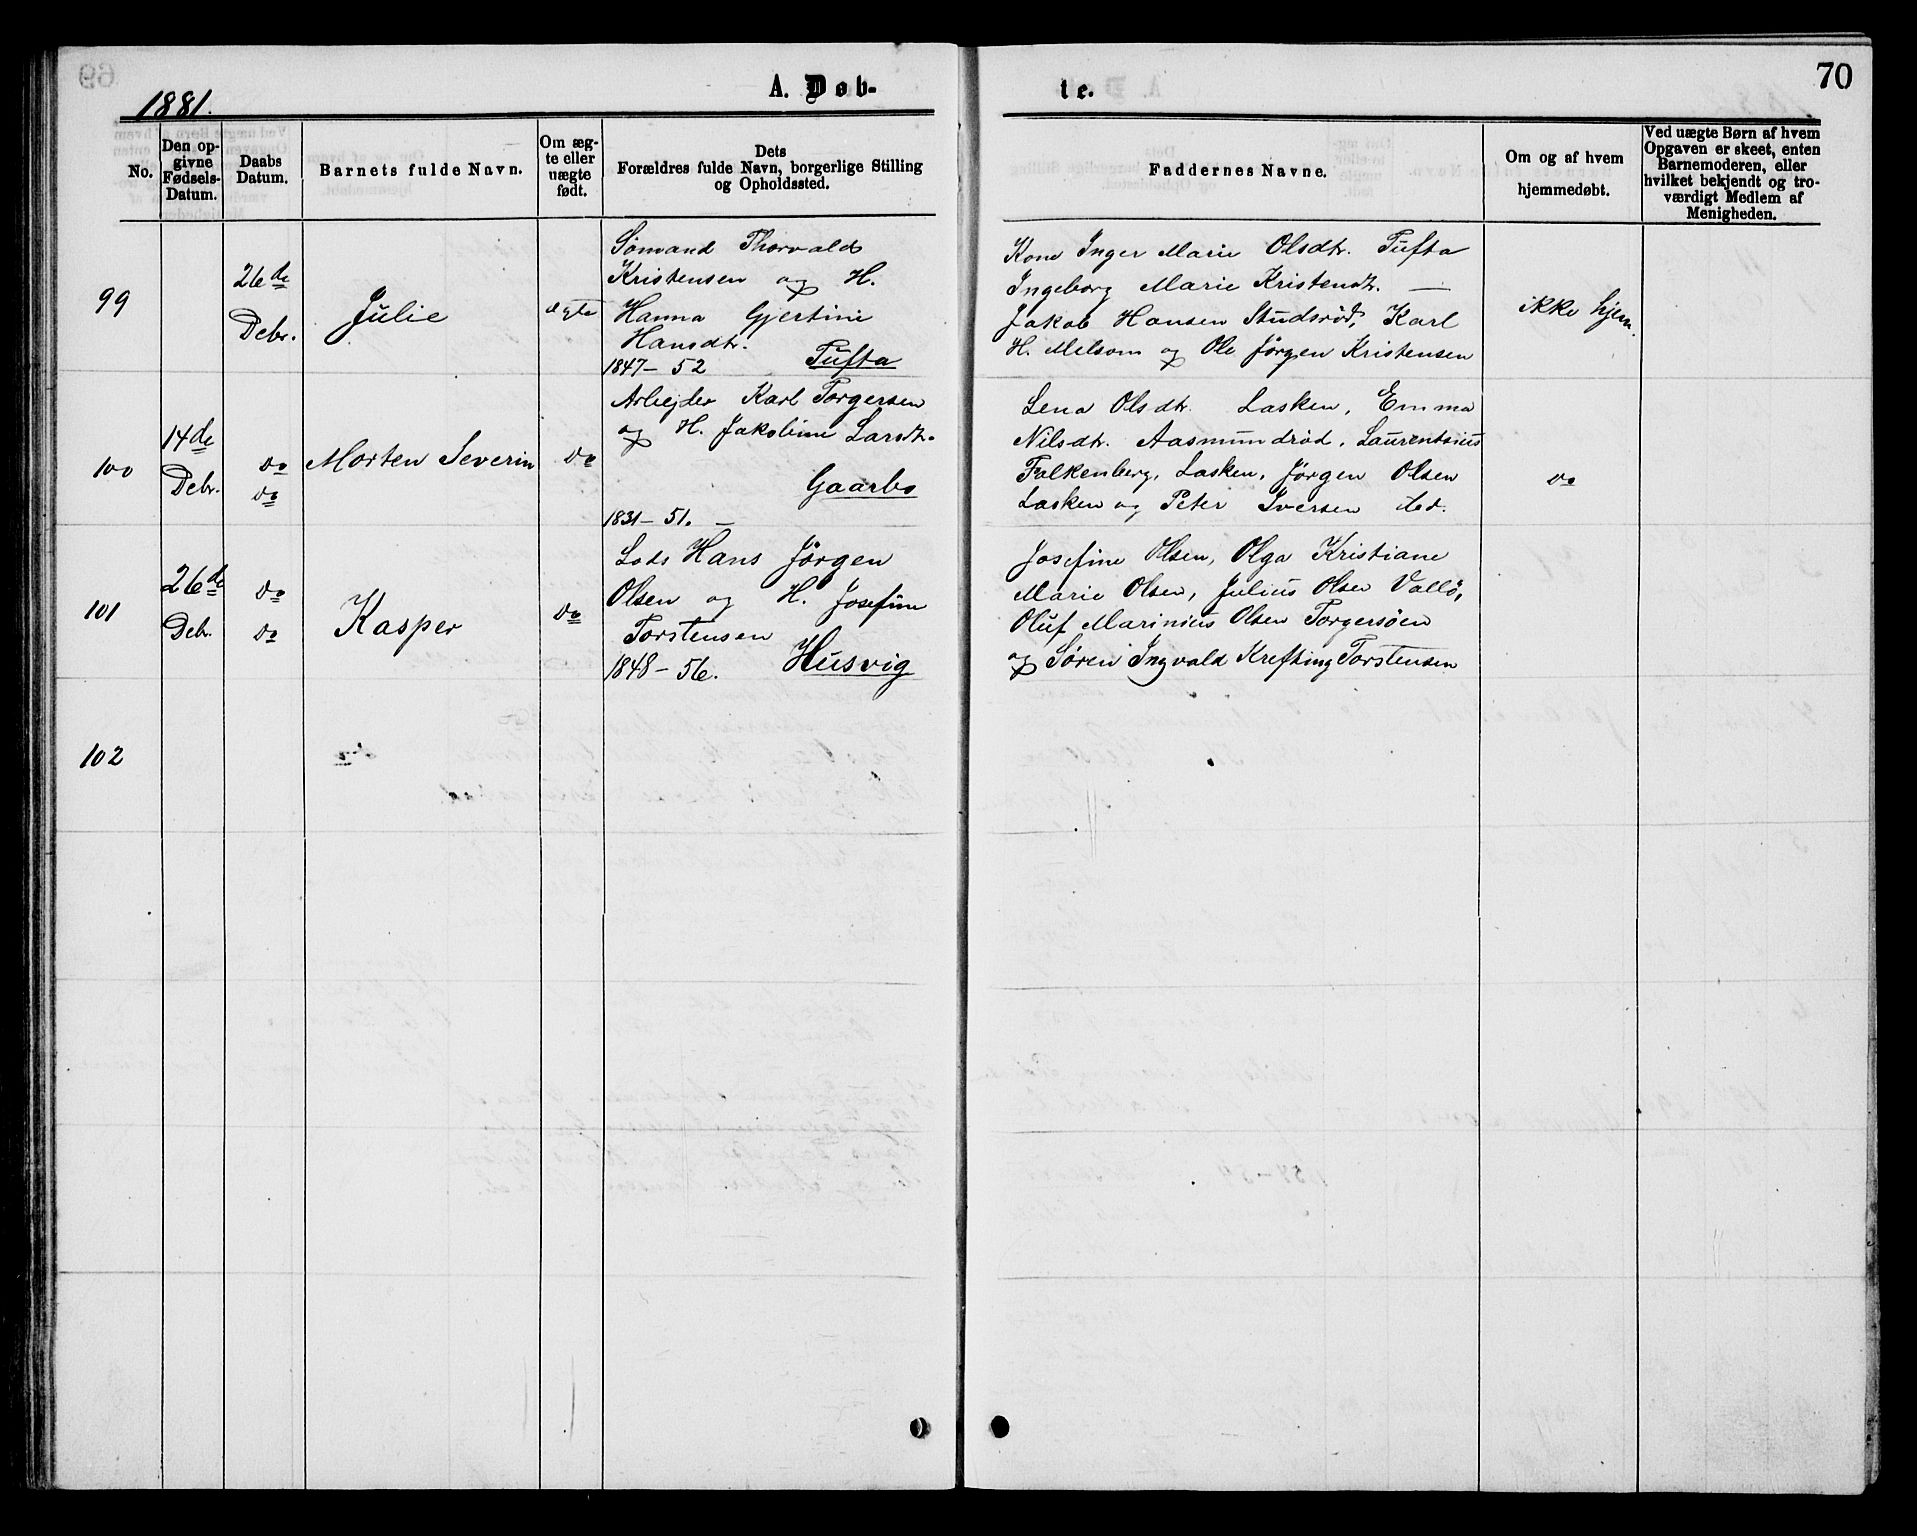 1881.
A. Døb-
te.
70
No.
Den op-
givne
Fødsels-
Datum.
Daabs
Datum.
Barnets fulde Navn.
Om æg-
te eller
uægte
født.
Dets
Forældres fulde Navn, borgerlige Stilling
og Opholdssted.
Faddernes Navne.
Om og af hvem
hjemmedøbt.
Ved uægte Børn af hvem
Opgaven er skeet, enten
Barnemoderen, eller
hvilket bekjendt og tro-
værdigt Medlem af
Menigheden.
99
26de
Debr.
Julie
ægte
Sømand Thorvald
Kristensen og H.
Hanna Gjertine
Hansdtr.
1847–52 Tufta
Kone Inger Marie Olsdtr. Tufta
Ingeborg Marie Kristendtr. —
Jakob Hansen Studsrød, Karl
H. Melsom og Ole Jørgen Kristensen
ikke hjem.
100
14de
Debr.
do
do
Morten Severin
do
Arbejder Karl Torgersen
og H. Jakobine Larsdtr.
Gaarbo
1831–51. —
Lena Olsdtr. Lasken, Emma
Nilsdtr. Aasmundrød, Laurentsius
Falkenberg, Lasken, Jørgen Olsen
Lasken og Peter Iversen ibd.
do
101
26de
Debr.
do
do
Kasper
do
Lods Hans Jørgen
Olsen og H. Josefine
Torstensen
1848–56. Husvig
Josefine Olsen, Olga Kristiane
Marie Olsen, Julius Olsen Vallø,
Oluf Marinius Olsen Torgersøen
og Søren Ingvald Krefting Torstensen
102